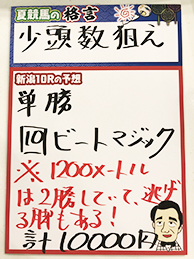 夏競馬の格言
少頭数狙え
新潟10Rの予想
単勝
⑩ビートマジック
※1200メートル
は2勝していて、逃げ
る脚もある!
計10000円